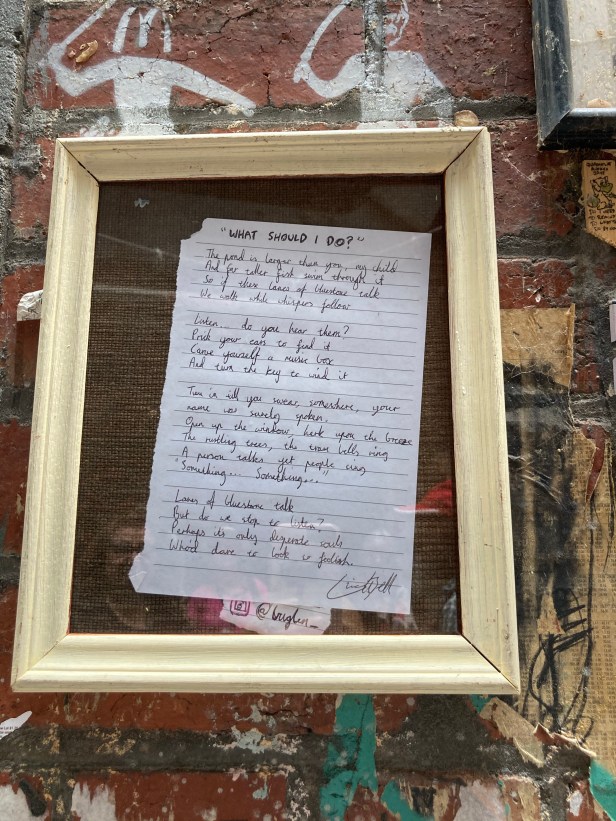 "WHAT SHOULD I DO?"
The pond is larger than you, my child
And far taller fish swim through it
So if these lanes of bluestone talk
We walk while whispers follow
Listen... do you hear them?
Prick your ears to find it
Carve yourself a music box
And turn the key to wind it
Tune in till you swear, somewhere, your
name was surely spoken.
Open up the window, hark upon the breeze
The rustling trees, the tram bells ring
A person talks yet people sing
"Something... Something..."
Lanes of bluestone talk
But do we stop to listen?
Perhaps its only desperate souls
Who'd dare to look so foolish.